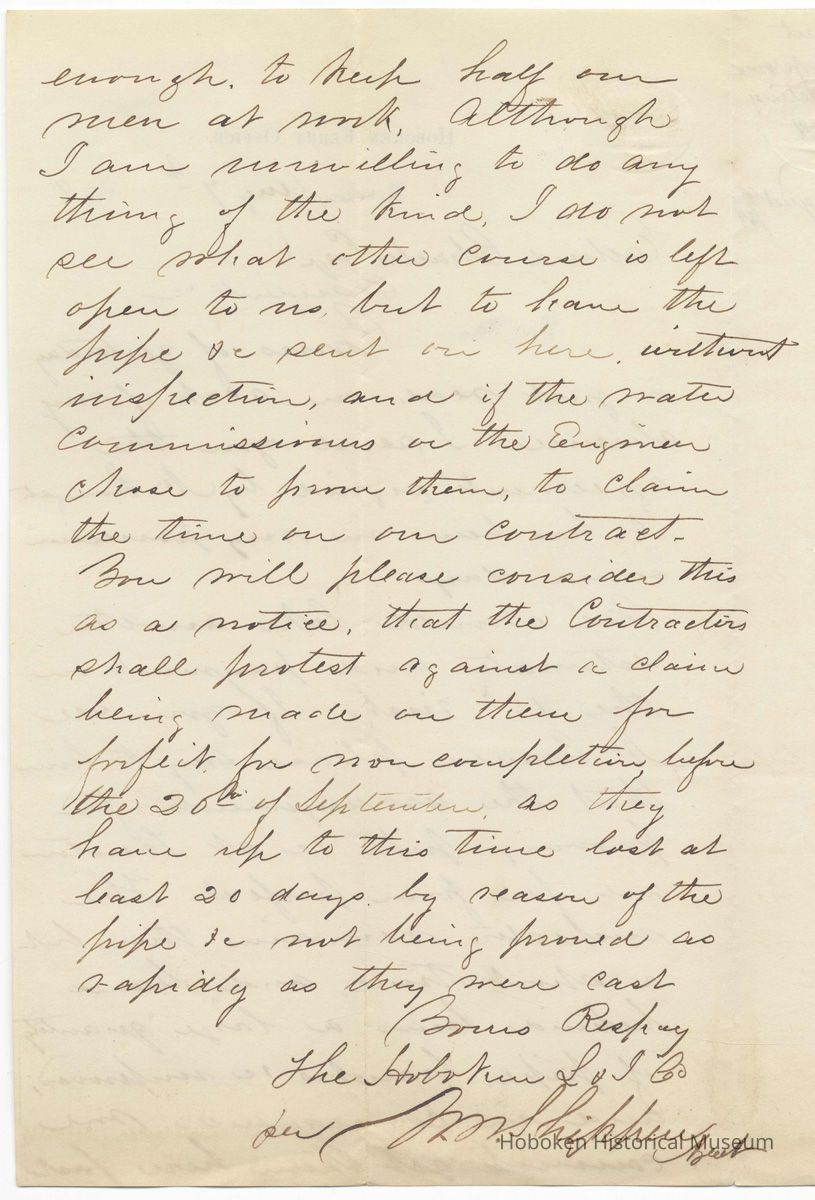 enough. to keep half our
men at work. Although
I am unwilling to do any
thing of the kind, I do not
see what other course is left
open to us, but to have the
pipe &c sent on here, without
inspection, and if the water
Commissioners or the Engineer
chose to prove them, to claim
the time on our contract.
You will please consider this
as a notice, that the Contractors
shall protest against a claim
being made on them for
forfeit for non completion, before
the 20th of September, as they
have up to this time lost at
least 20 days. by reason of the
pipe &c not being proved as
rapidly as they were cast
Yours Respcy
The Hoboken L & I Co
per Wm Shippen Agent
Hoboken Historical Museum